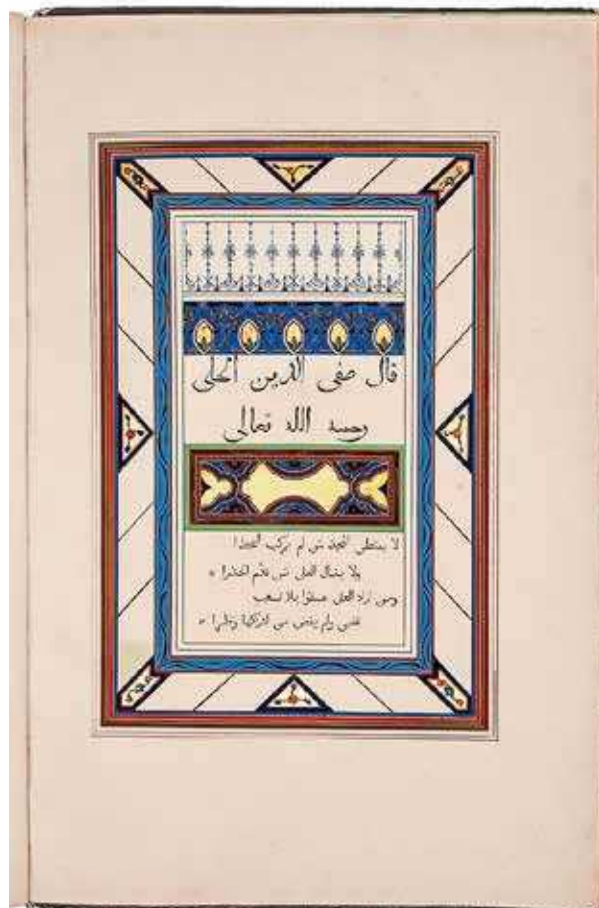 قال صفى الدين الحلى
رحمه الله تعالى
لا يمتطى المجد من لم يركب الخطرا
ولا ينال العلى من قدم الحذرا *
ومن اراد العلى عفوا بلا تعب
قضى ولم يقض من ادراكها وطرا *